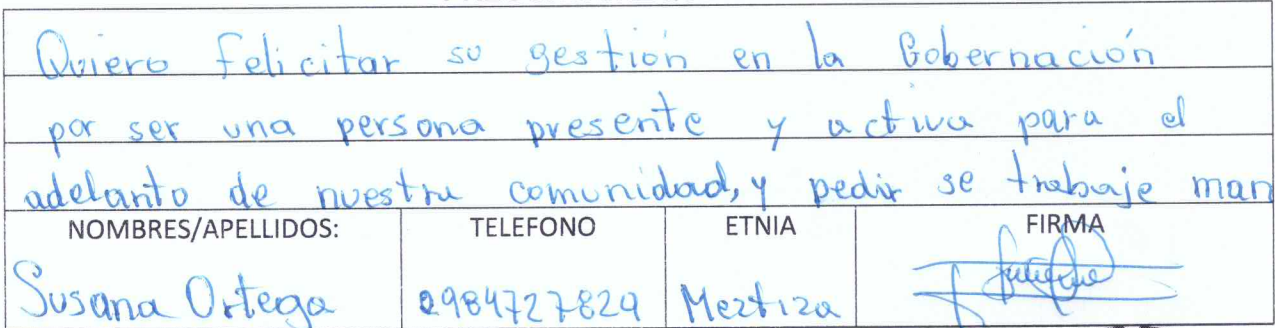 Quiero felicitar su gestión en la Gobernación
por ser una persona presente y activa para el
adelanto de nuestra comunidad, y pedir se trabaje man
NOMBRES/APELLIDOS: TELEFONO ETNIA FIRMA
Susana Ortega 0984727829 Meztiza